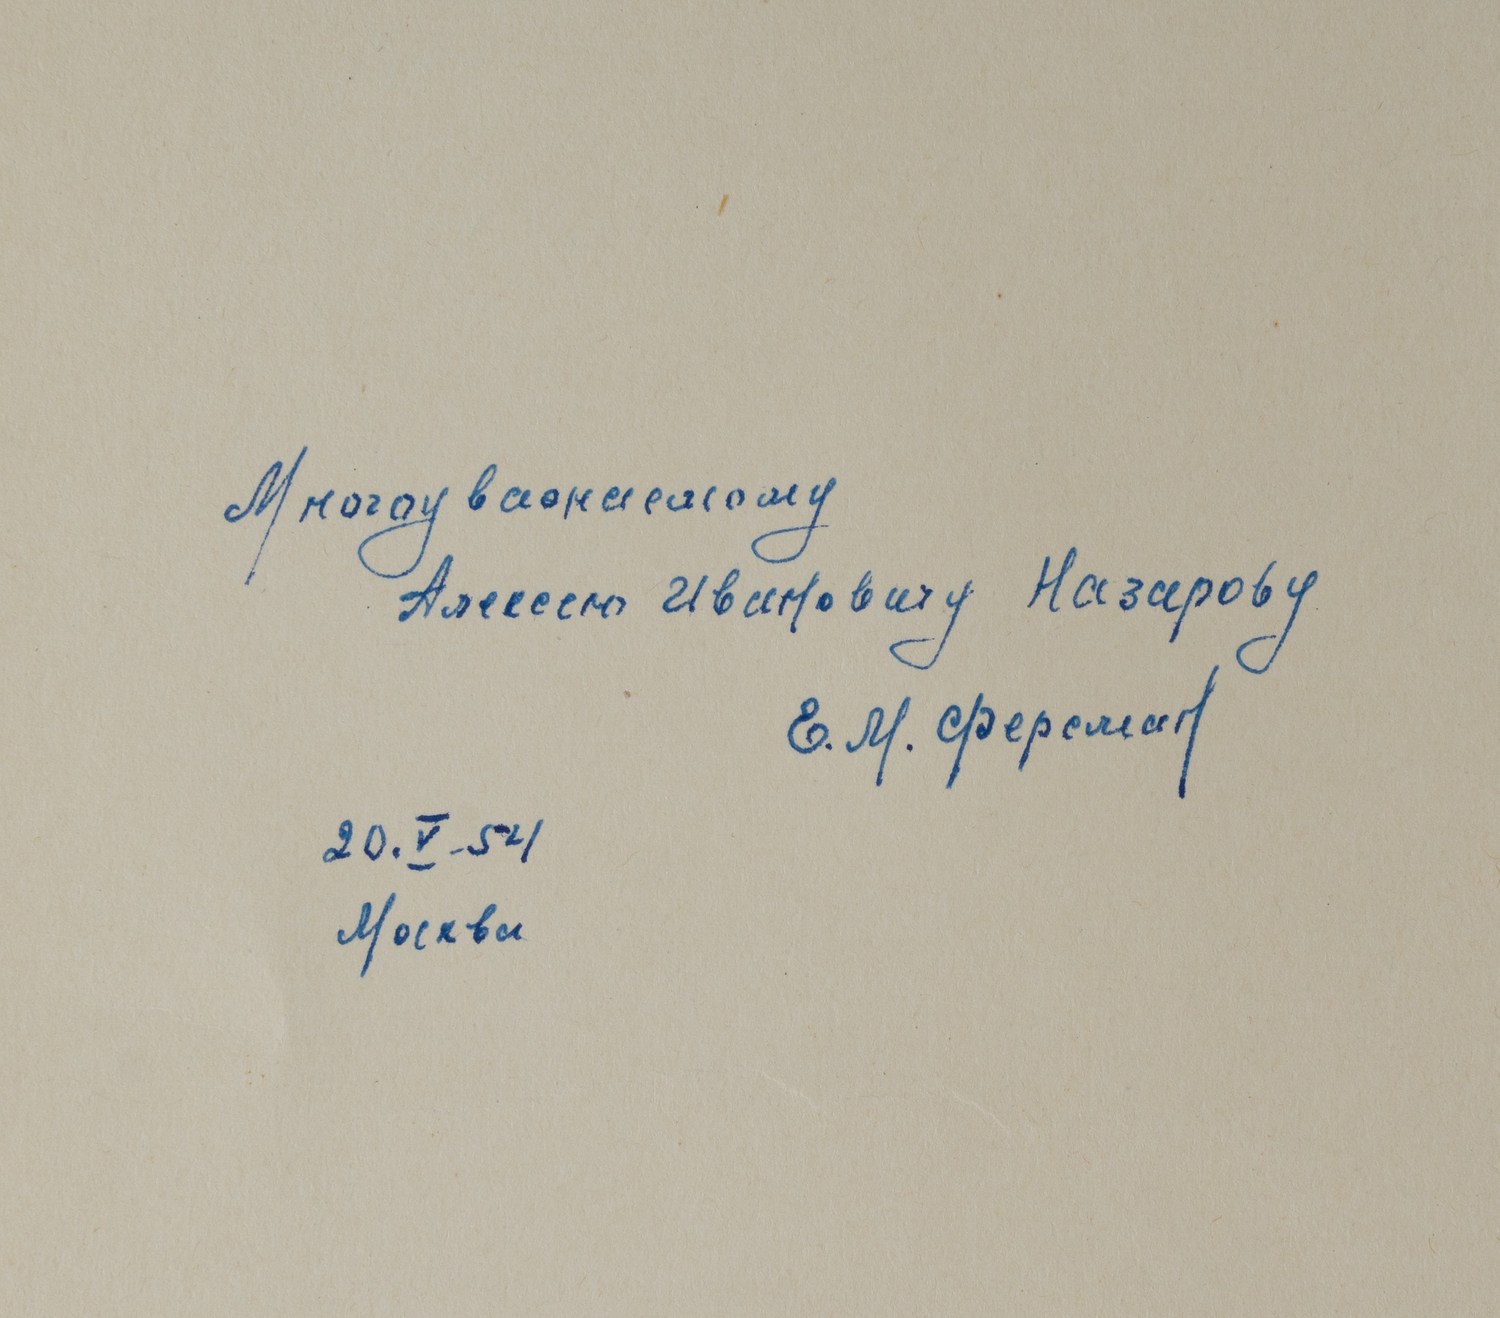 Многоуважаемому
Алексею Ивановичу Назарову
Е.М. Ферсман
20.V-54
Москва